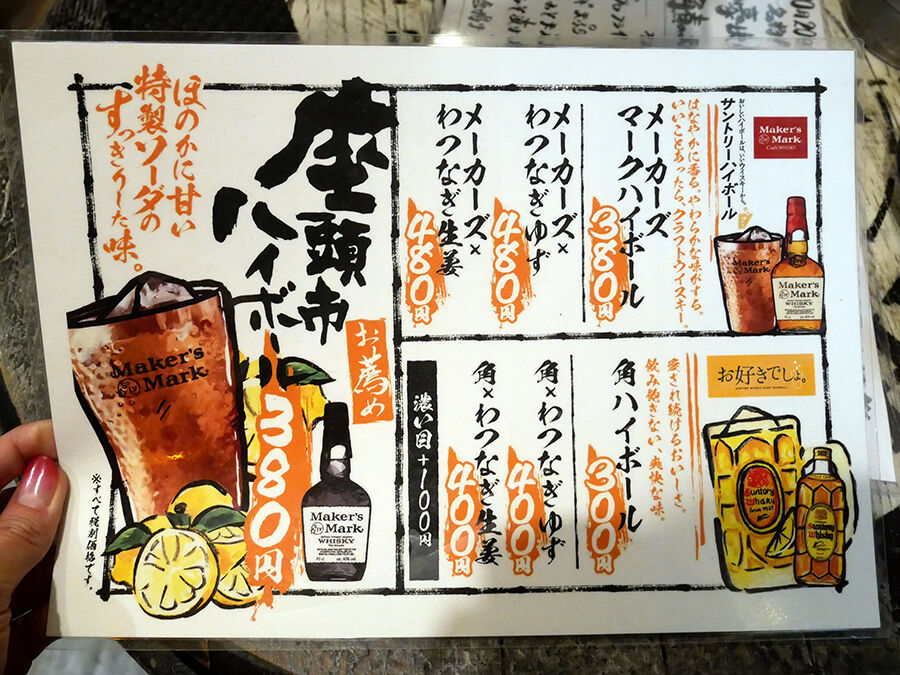 おいしいハイボールは、いいウイスキーから。
サントリーハイボール
Maker's
Mark
はなやかに香る。やわらかな味がする。
いいことあったら、クラフトウイスキー。
メーカーズ
マークハイボール
380円
メーカーズ×
わつなぎゆず
480円
メーカーズ×
わつなぎ生姜
480円
Maker's
Mark
Maker's
Mark
WHISKY
お好きでしょ。
愛され続けるおいしさ。
飲み飽きない、爽快な味。
角ハイボール
300円
角×わつなぎゆず
400円
角×わつなぎ生姜
400円
濃い目+100円
Suntory
Whisky
Suntory
Whisky
座頭市
ハイボール
お薦め
380円
ほのかに甘い
特製ソーダの
すっきりした味。
Maker's
Mark
Maker's
Mark
WHISKY
※すべて税別価格です。